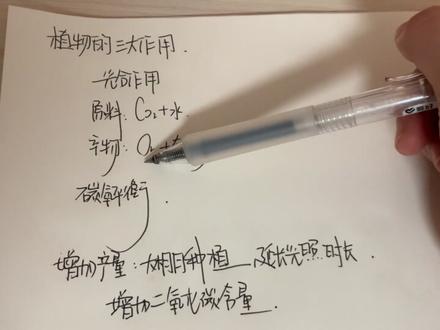 植物的三大作用.
光合作用
原料: CO2+水.
产物: O2+
碳氧平衡.
增加产量: 大棚种植 延长光照时长.
增加二氧化碳含量.